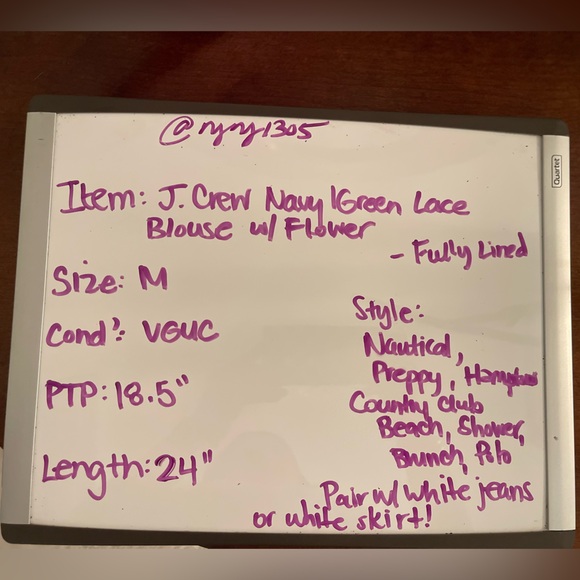 @nyny1305
Item: J. Crew Navy/Green Lace
Blouse w/ Flower
- Fully Lined
Size: M
Cond': VGUC
PTP: 18.5"
Length: 24"
Style:
Nautical,
Preppy,
Country club
Beach, Shower,
Brunch, Polo
Pair w/ white jeans
or white skirt!
Quartet